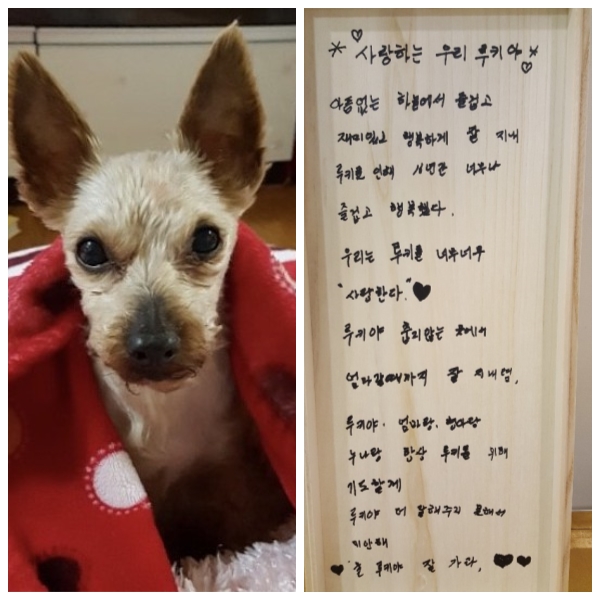 사랑하는 우리 루키야
아픔없는 하늘에서 즐겁고
재미있고 행복하게 잘 지내
루키로 인해 년간 너무나
즐겁고 행복했다.
우리는 루키를 너무너무
"사랑한다."
루키야 춥지않는 곳에서
엄마갈때까지 잘 지내렴,
루키야. 엄마랑. 형아랑
누나랑 항상 루키를 위해
기도할게
루키야 더 잘해주지 못해서
미안해
루키야 잘 가라,